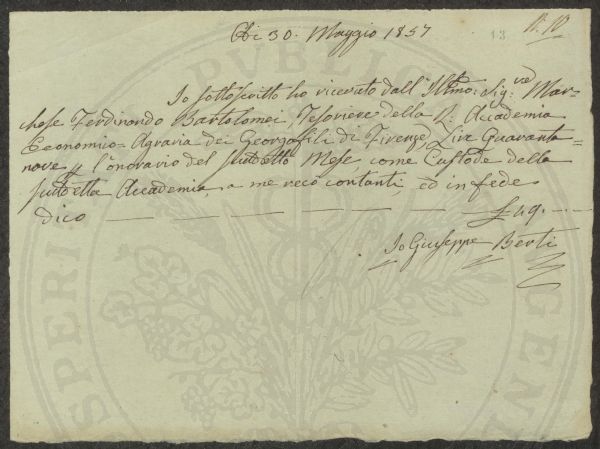 Adi 30. Maggio 1857
13
N. 10
Io sottoscritto ho ricevuto dall' Illmo: Sigre Mar=
chese Ferdinando Bartolomei, Tesoriere della R: Accademia
Economico=Agraria dei Georgofili di Firenze, Lire Quaranta=
nove p l'onorario del suddetto Mese come Custode della
suddetta Accademia, a me recò contanti, ed in fede
dico — — — — — — £ 49. —
Io Giuseppe Berti
PUBLICAE
PROSPERITATI
AUGENDAE